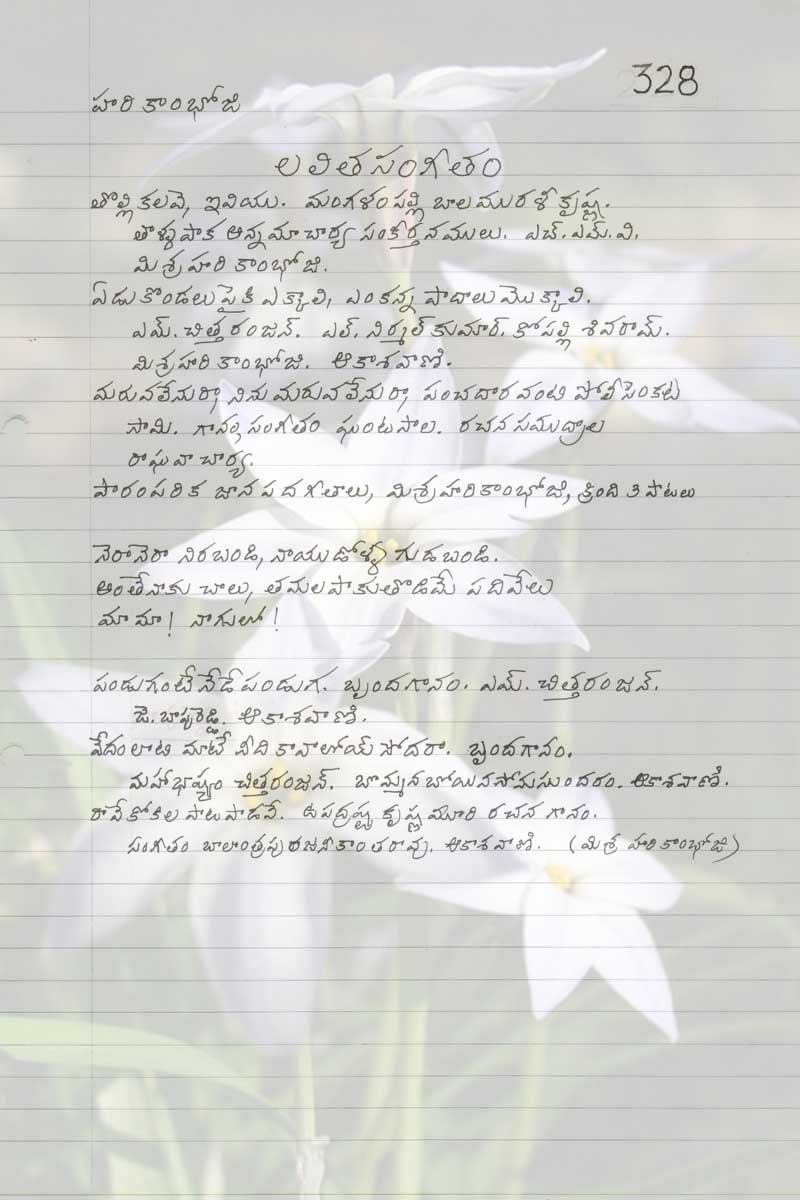 328
హరి కాంభోజి
లలిత సంగీతం
తొల్లి కలవె, ఇవియు. మంగళంపల్లి బాలమురళీ కృష్ణ.
తాళ్ళపాక అన్నమాచార్య సంకీర్తనములు. ఎచ్.ఎమ్.వి.
మిశ్రహరి కాంభోజి.
ఏడుకొండలు పైకి ఎక్కాలి, ఎంకన్న పాదాలు మొక్కాలి.
ఎమ్. చిత్తరంజన్. ఎల్. నిర్మల్ కుమార్. కోపల్లి శివరామ్.
మిశ్రహరి కాంభోజి. ఆకాశవాణి.
మరువలేమురా, నిను మరువలేమురా, పంచదార వంటి పోలీసెంకట
సామి. గానం, సంగీతం ఘంటసాల. రచన సముద్రాల
రాఘవాచార్య.
పారంపరిక జానపద గీతాలు, మిశ్రహరికాంభోజి, క్రింది 3 పాటలు
నెరానెరా నెరబండి, నాయుడోళ్ళ గుడబండి.
అంతేనాకు చాలు, తమలపాకుతొడిమే పదివేలు
మామా! నాగులో!
పండుగంటే నేడే పండుగ. బృందగానం. ఎమ్. చిత్తరంజన్.
జె. బాపురెడ్డి. ఆకాశవాణి.
వేదంలాటి మాటే నీది కావాలోయ్ సోదరా. బృందగానం.
మహాభాష్యం చిత్తరంజన్. బొమ్మన బోయిన సోమసుందరం. ఆకాశవాణి.
రావే కోకిల పాట పాడవే. ఉపద్రష్ట కృష్ణమూర్తి రచన గానం.
సంగీతం బాలాంత్రపు రజనీకాంతరావు. ఆకాశవాణి. (మిశ్ర హరికాంభోజి)